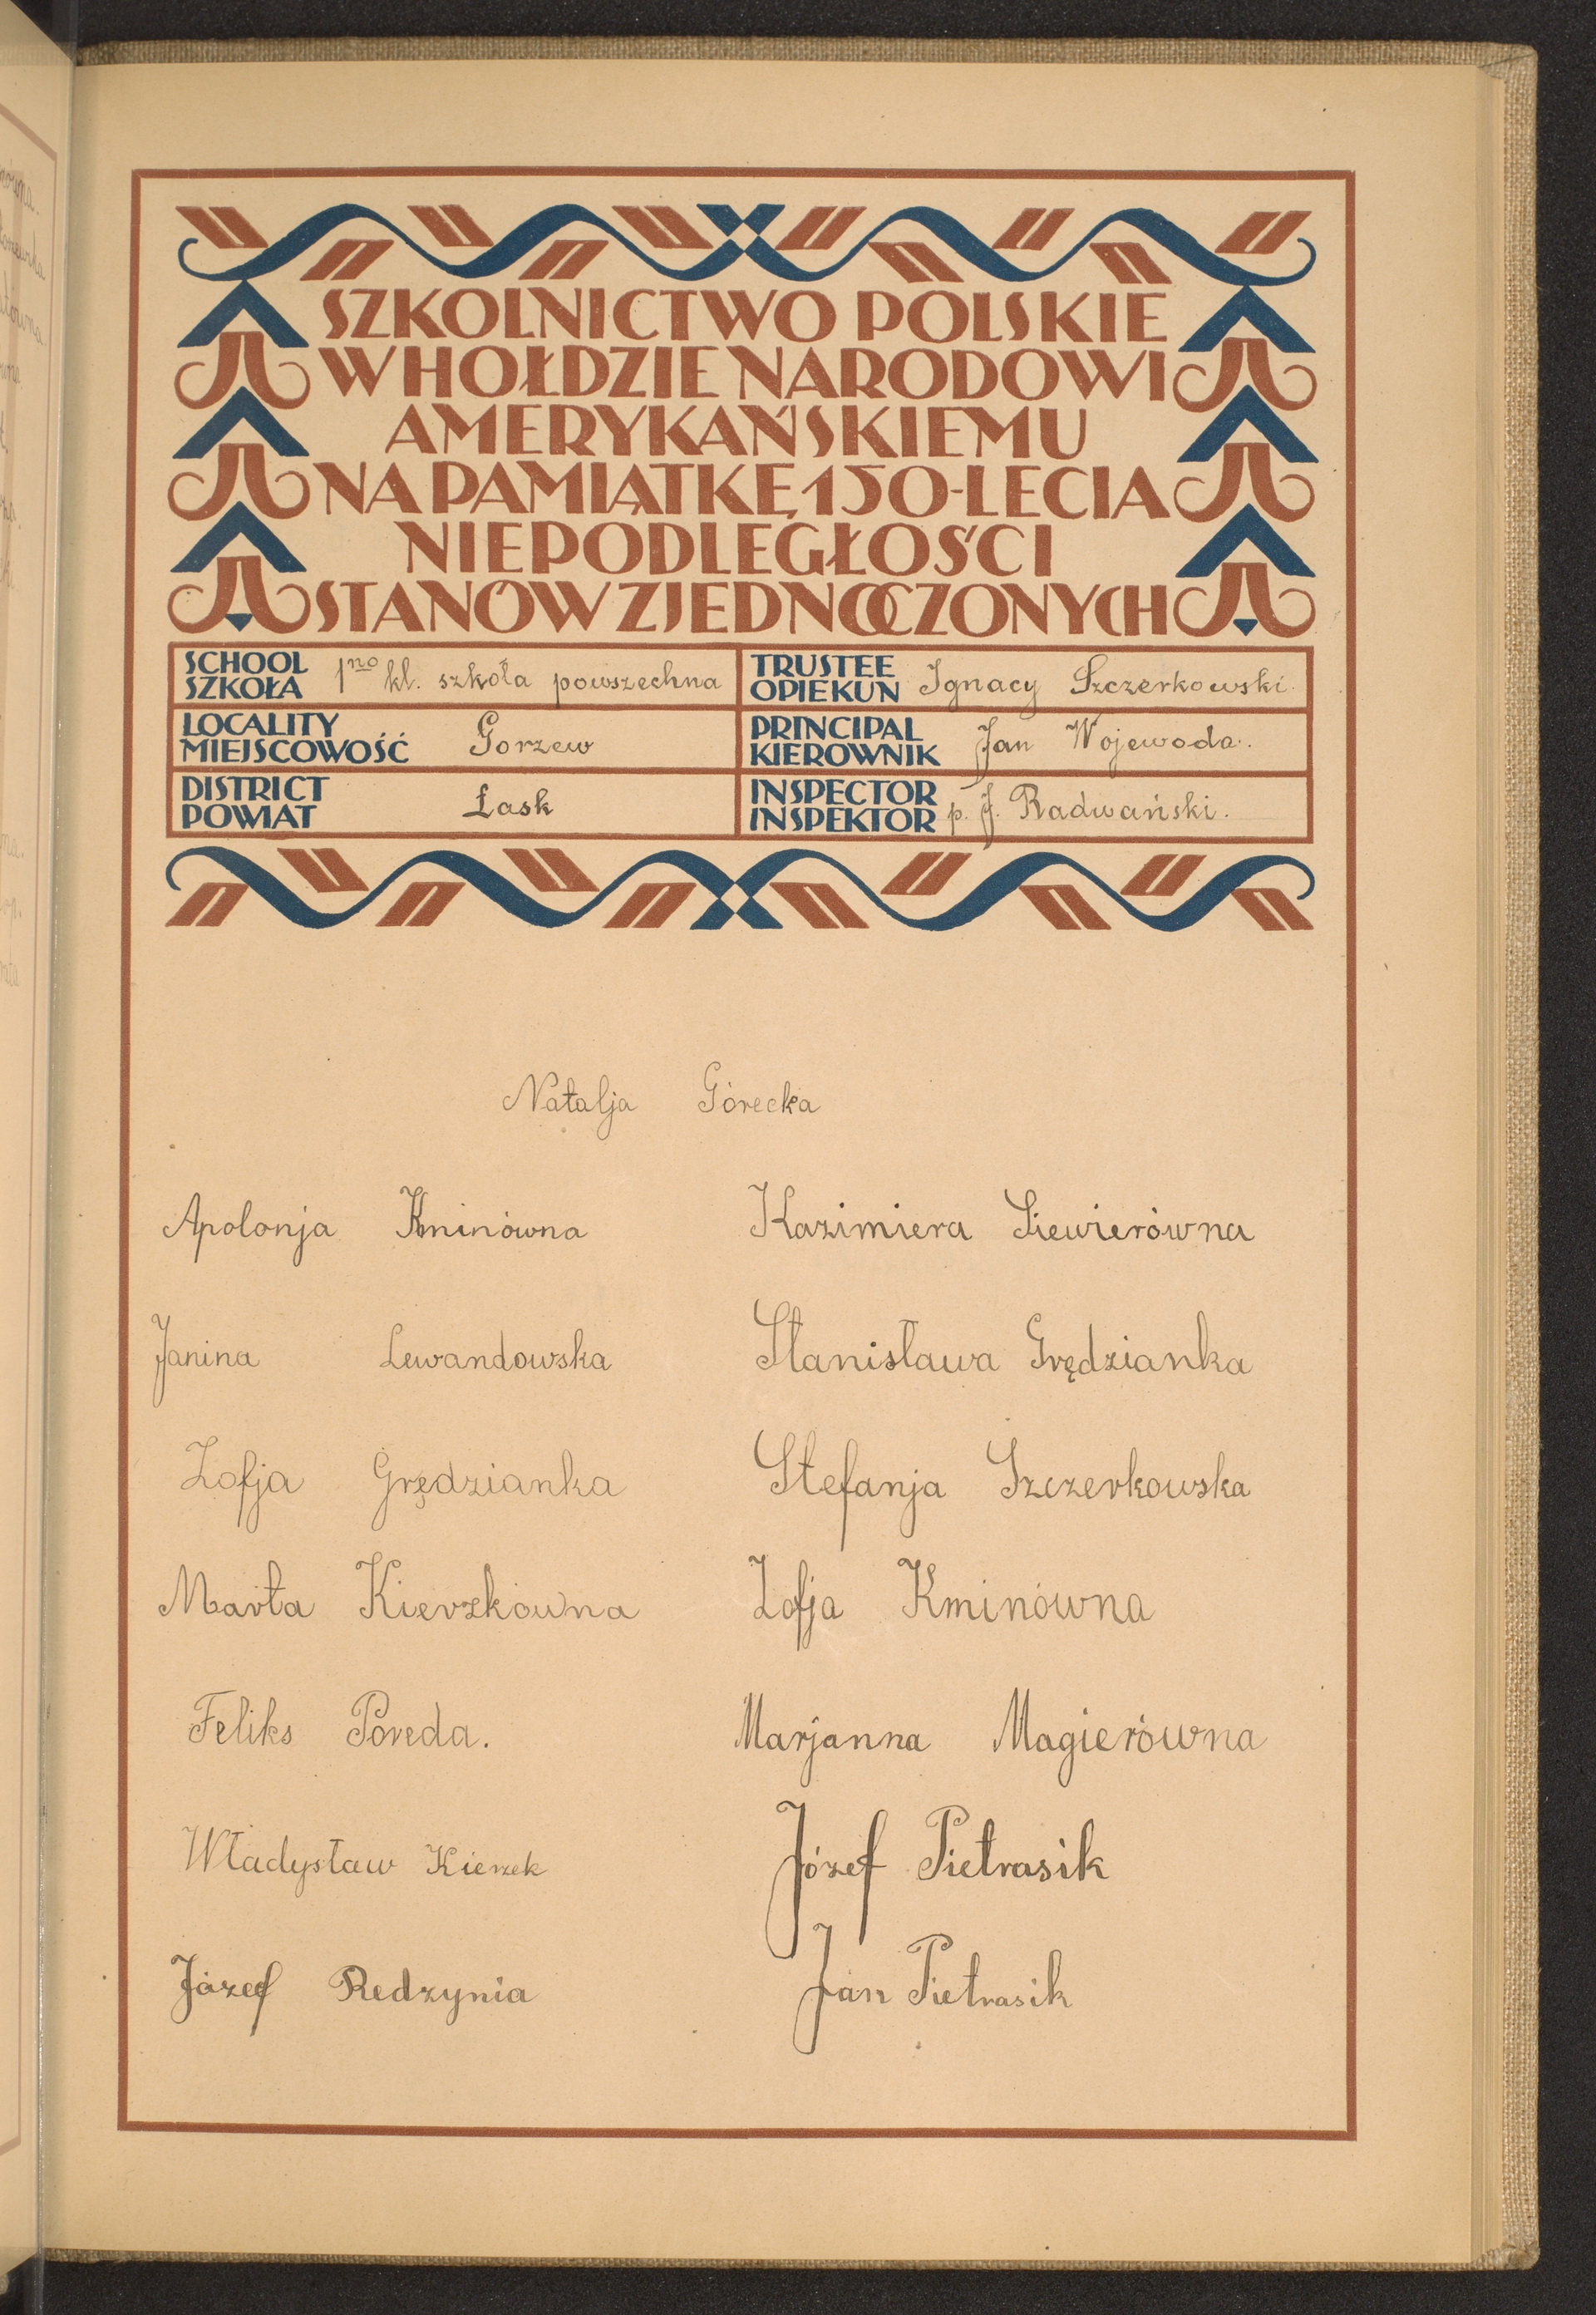 SZKOLNICTWO POLSKIE
W HOŁDZIE NARODOWI
AMERYKAŃSKIEMU
NA PAMIĄTKĘ 150-LECIA
NIEPODLEGŁOŚCI
STANÓW ZJEDNOCZONYCH
SCHOOL
SZKOŁA 1no kl. szkoła powszechna
TRUSTEE
OPIEKUN Ignacy Szczerkowski.
LOCALITY
MIEJSCOWOŚĆ Gorzew
PRINCIPAL
KIEROWNIK Jan Wojewoda.
DISTRICT
POWIAT Łask
INSPECTOR
INSPEKTOR p. J. Radwański.
Natalja Górecka
Apolonja Kminówna
Kazimiera Siewierówna
Janina Lewandowska
Stanisława Grędzianka
Zofja Grędzianka
Stefanja Szczerkowska
Marta Kierzkówna
Zofja Kminówna
Feliks Poreda.
Marjanna Magierówna
Władysław Kierzek
Józef Pietrasik
Józef Redzynia
Jan Pietrasik